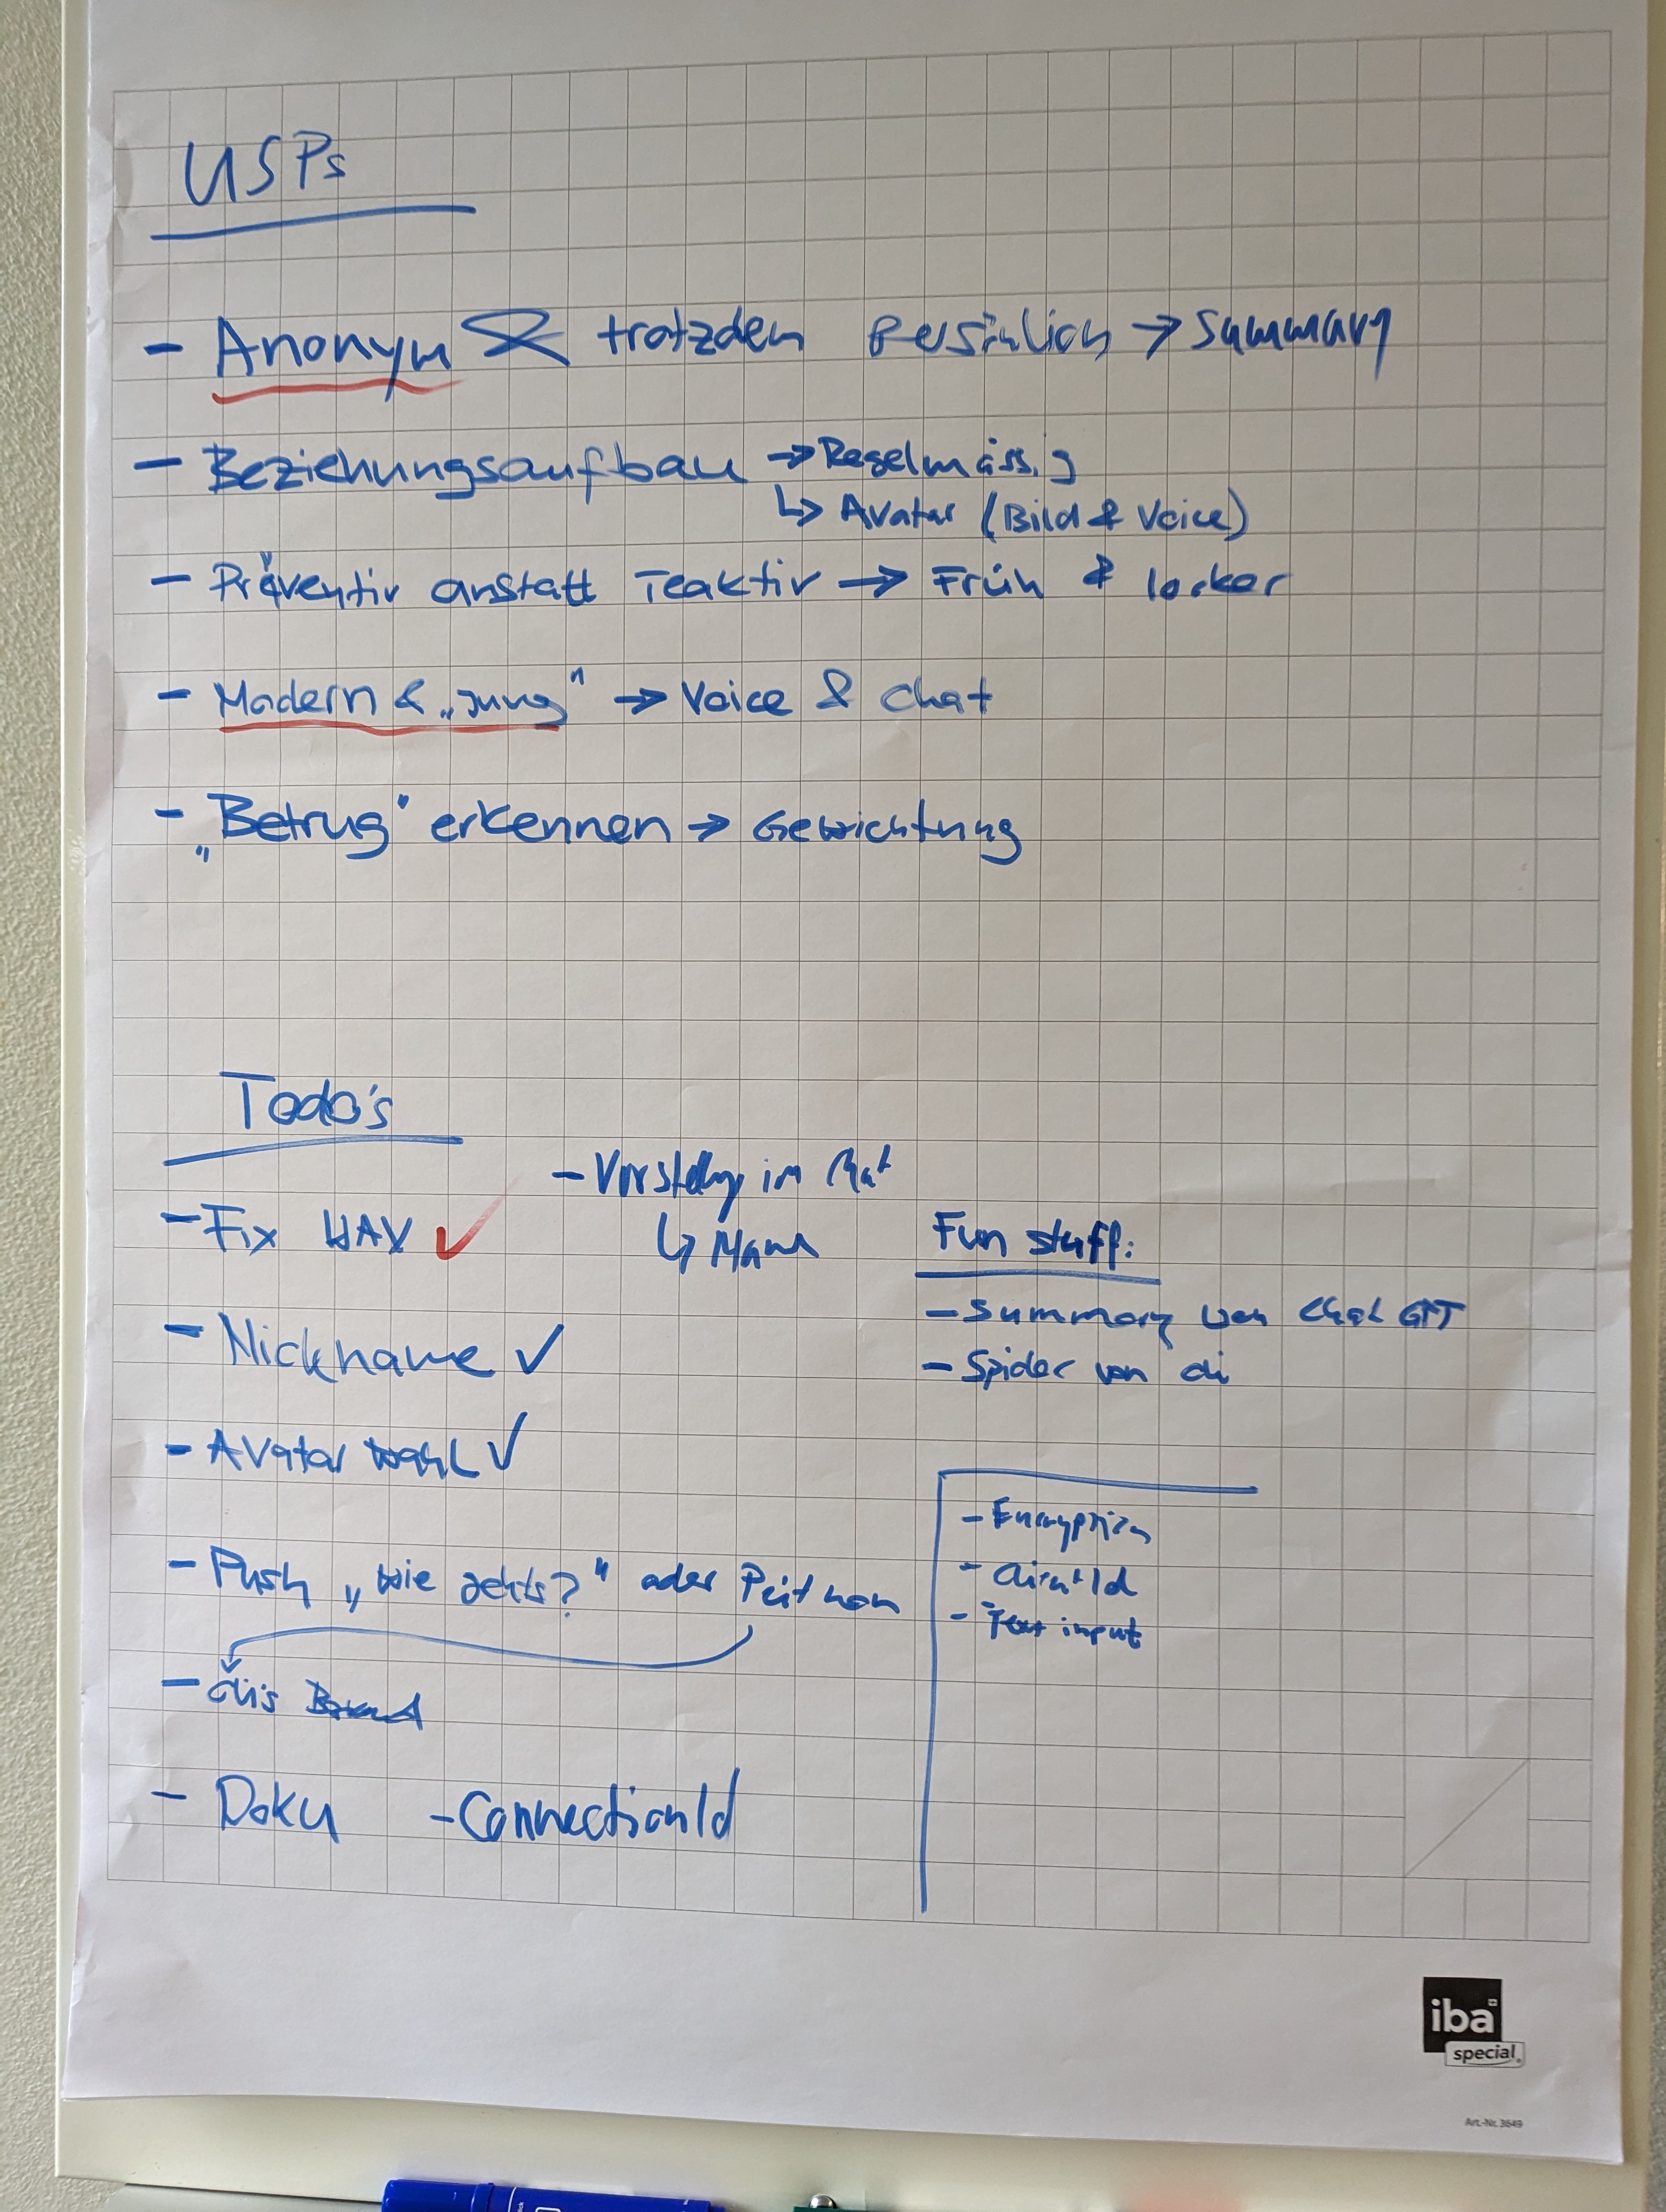 USPs
- Anonym & trotzdem Persönlich → Summary
- Beziehungsaufbau → Regelmässig
↳ Avatar (Bild & Voice)
- Präventiv anstatt reaktiv → Früh & locker
- Modern & „Jung" → Voice & Chat
- „Betrug" erkennen → Gewichtung
Todo's
- Vorstellung im
↳
- Fix WAV ✓
- Nickname ✓
- Avatar wahl ✓
- Push „Wie gehts?" oder
-
- Doku - ConnectionId
Fun stuff:
- Summary von Chat GPT
- Spider von
- Encryption
-
- Text input
iba
special
Art.-Nr. 3649